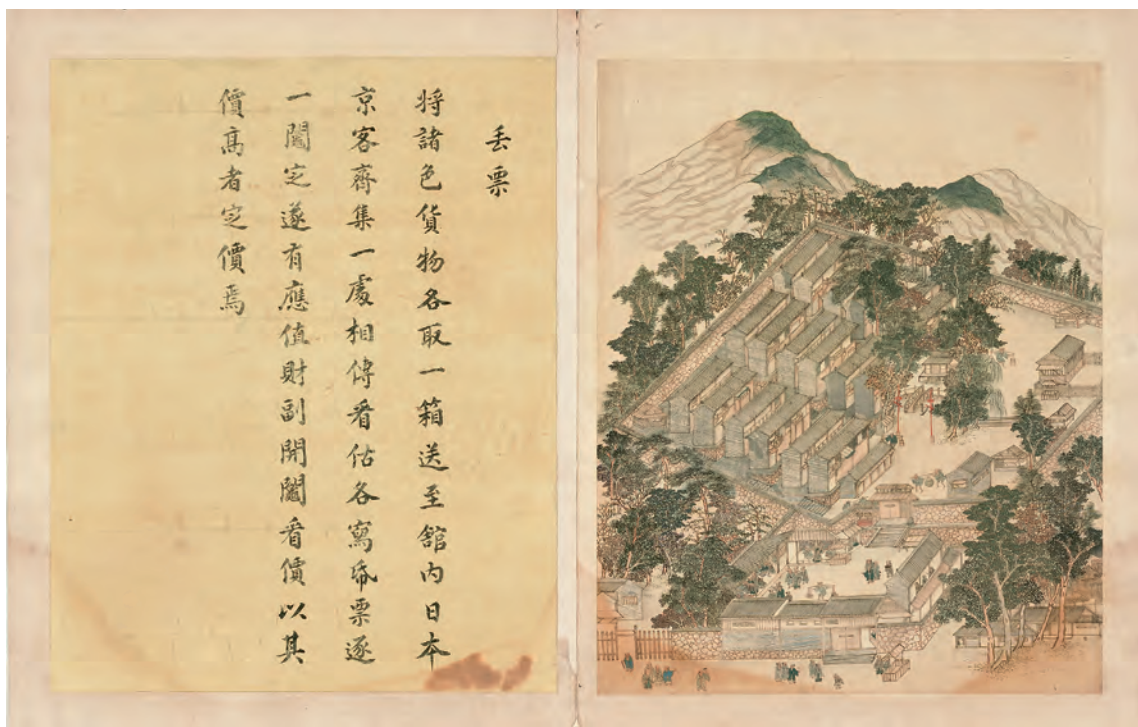 丢票
将諸色貨物各取一箱送至舘内日本
京客齊集一處相傳看估各寫帋票逐
一鬮定遂有應值財副開鬮看價以其
價髙者定價焉